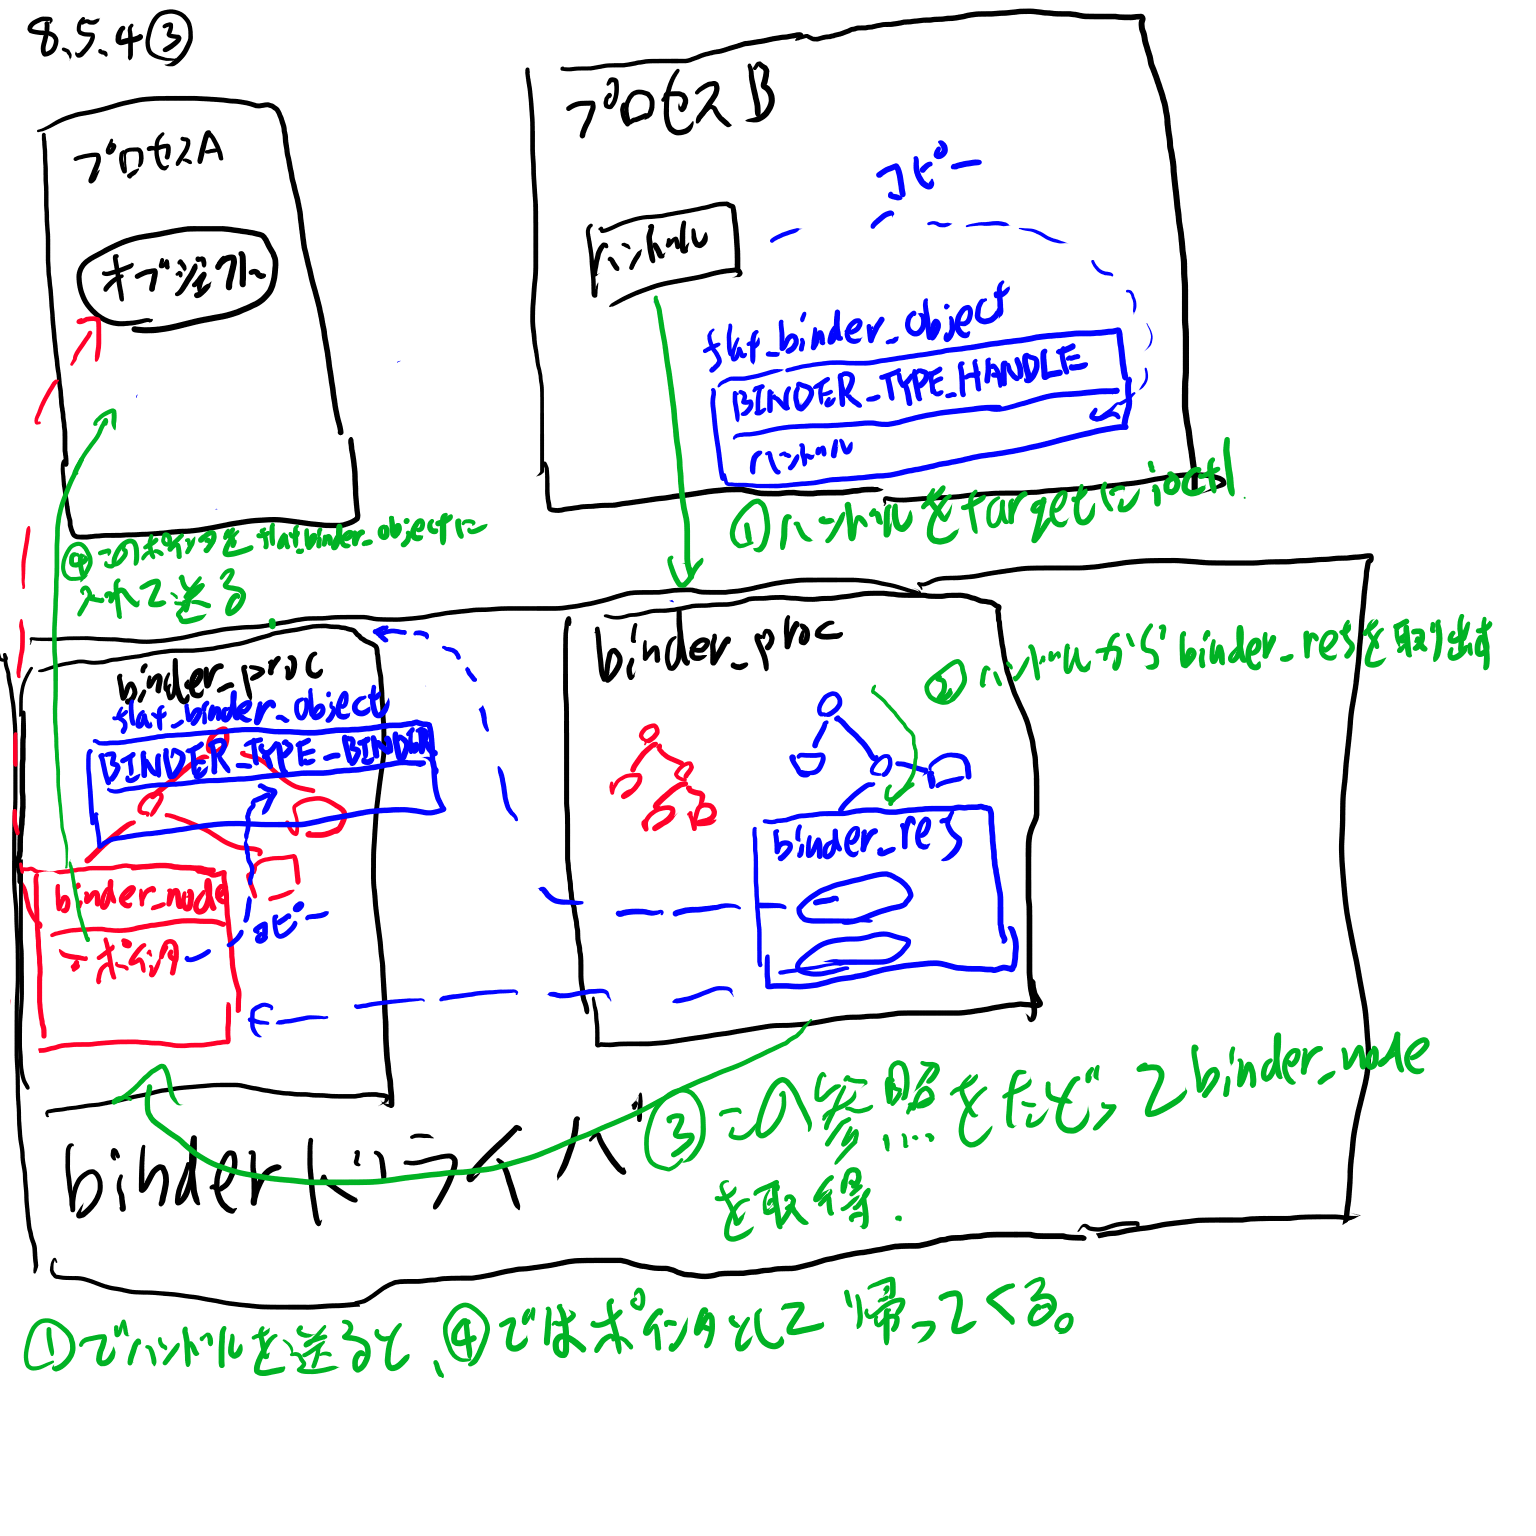 8.5.4③
プロセスA
オブジェクト
プロセスB
コピー
ハンドル
flat_binder_object
BINDER_TYPE_HANDLE
ハンドル
①ハンドルをtargetにioctl
④このポインタをflat_binder_objectに
入れて送る
binder_proc
flat_binder_object
BINDER_TYPE_BINDER
binder_node
ポインタ
コピー
binder_proc
②ハンドルからbinder_refを取り出す
binder_ref
③この参照をたどってbinder_node
を取得.
binderドライバ
①でハンドルを送ると、④ではポインタとして帰ってくる。